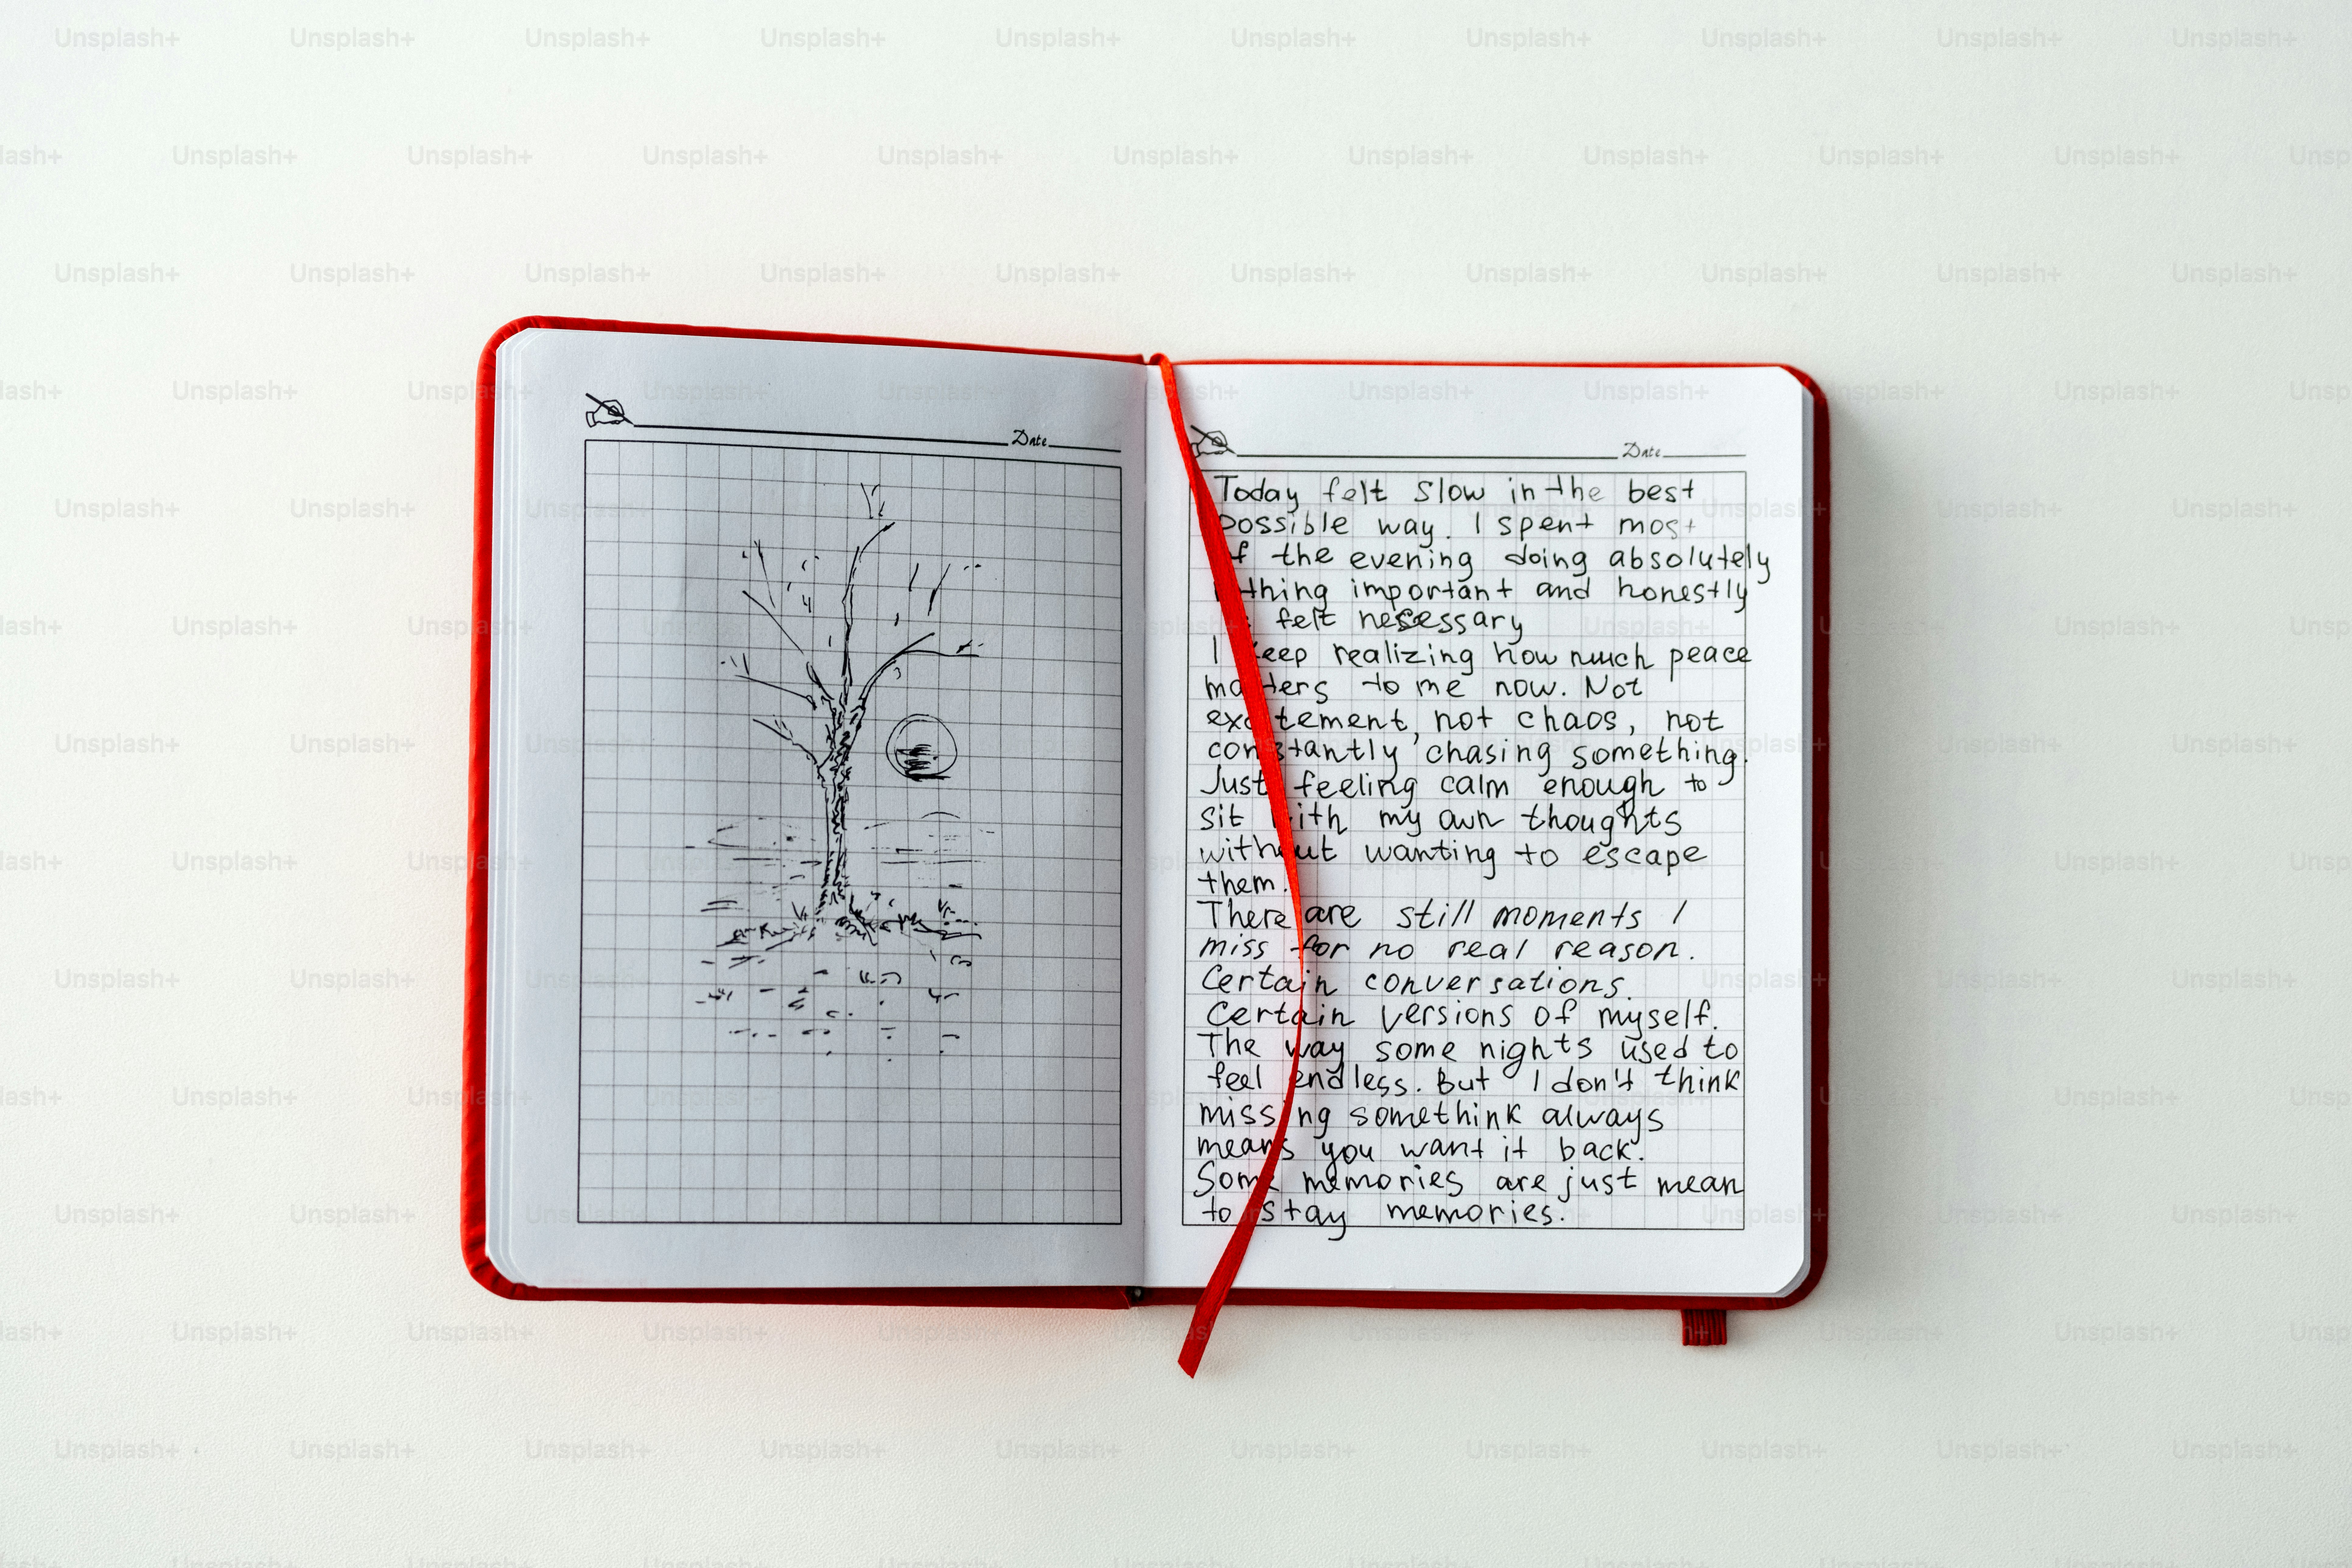 Date
Date
Today felt slow in the best
possible way. I spent most
of the evening doing absolutely
important and honestly
felt necessary
I keep realizing how much peace
matters to me now. Not
excitement, not chaos, not
constantly chasing something.
Just feeling calm enough to
sit with my own thoughts
without wanting to escape
them.
There are still moments I
miss for no real reason.
Certain conversations.
Certain versions of myself.
The way some nights used to
feel endless. But I don't think
missing somethink always
means you want it back.
Some memories are just mean
to stay memories.